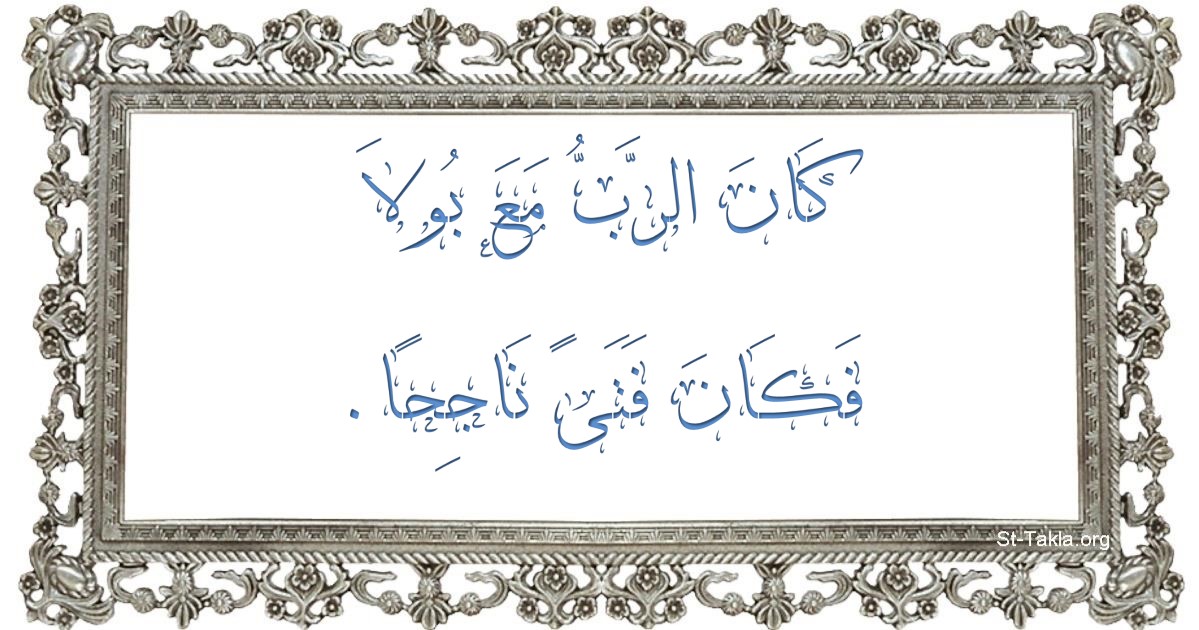 كَانَ الرَّبُّ مَعَ بُولاَ
فَكَانَ فَتَىً نَاجِحًا .
St-Takla.org